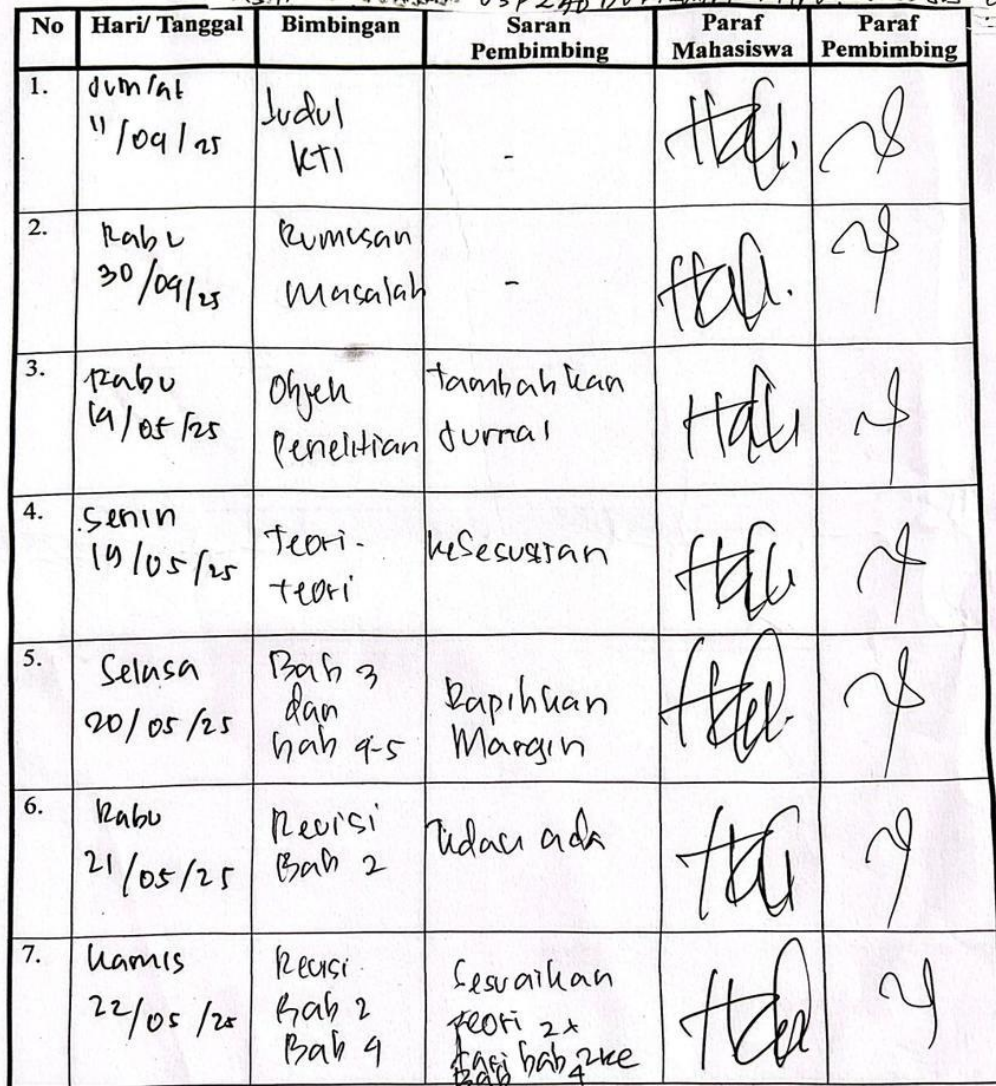 No Hari/ Tanggal Bimbingan Saran Pembimbing Paraf Mahasiswa Paraf Pembimbing
1. Jum'at
11/09/25
Judul
KTI
-
2. Rabu
30/09/25
Rumusan
Masalah
-
3. Rabu
19/05/25
Objek
Penelitian
tambahkan
Jurnal
4. Senin
19/05/25
teori-
teori
kesesuaian
5. Selasa
20/05/25
Bab 3
dan
bab 4-5
Rapihkan
Margin
6. Rabu
21/05/25
Revisi
Bab 2
tidak ada
7. Kamis
22/05/25
Revisi
Bab 2
Bab 4
Sesuaikan
teori 2x
dari bab 2 ke
Bab 4